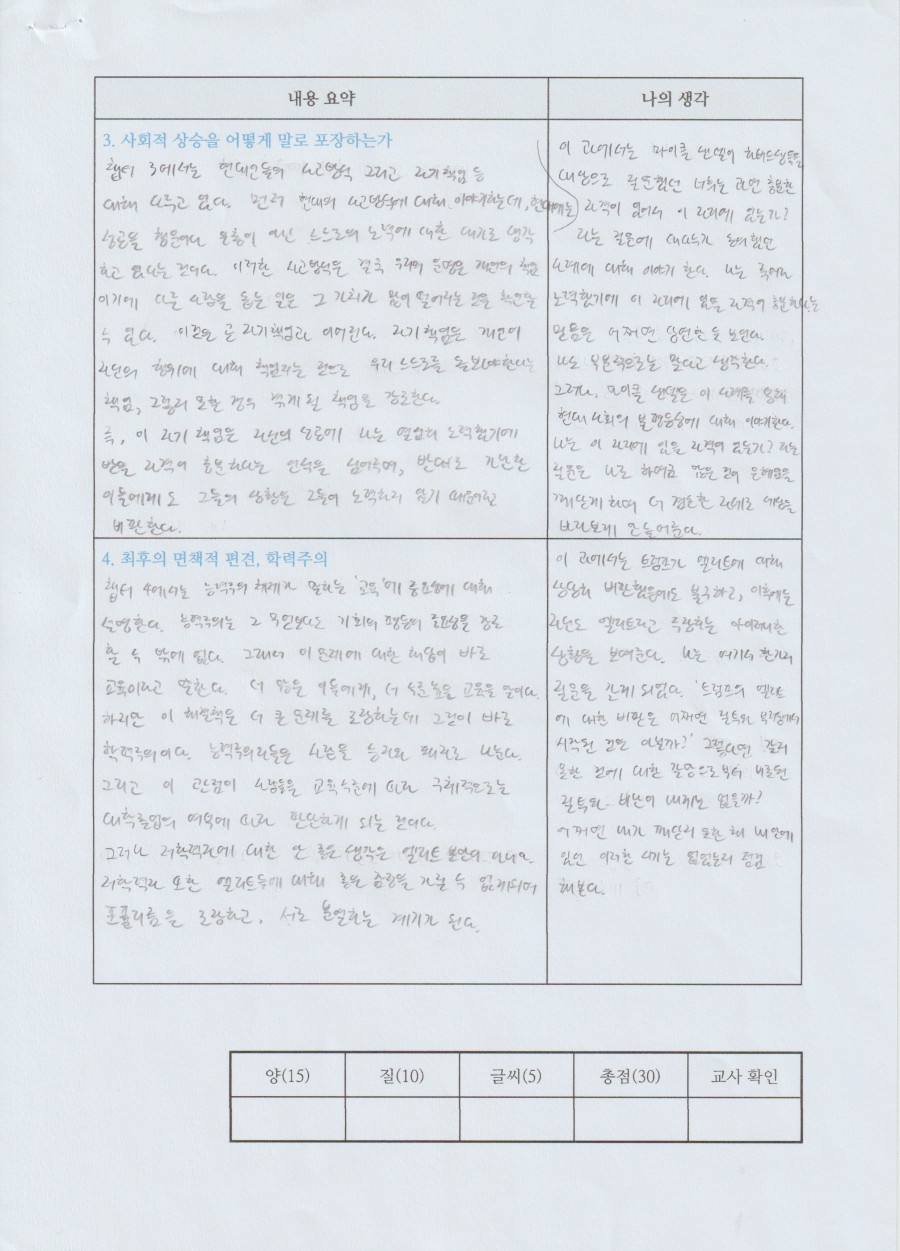 내용 요약
나의 생각
3. 사회적 상승을 어떻게 말로 포장하는가
챕터 3에서는 현대인들의 사고방식 그리고 자기책임 등
대해 다루고 있다. 먼저 현대의 사고방식에 대해 이야기하는데, 현대에는
성공을 행운이나 은총이 아닌 스스로의 노력에 대한 대가로 생각
하고 있다는 것이다. 이러한 사고방식은 결국 우리의 운명은 개인의 책임
이기에 다른 사람을 돕는 일은 그 가치가 많이 떨어지는 것을 확인할
수 있다. 이것은 곧 자기책임과 이어진다. 자기책임은 개인이
자신의 행위에 대해 책임지는 것으로 우리 스스로를 돌봐야한다는
책임, 그렇지 못한 경우 겪게 될 책임을 강조한다.
즉, 이 자기책임은 자신의 성공에 나는 열심히 노력했기에
받을 자격이 충분하다는 인식을 심어주며, 반대로 가난한
이들에게도 그들의 상황은 그들이 노력하지 않기 때문이라고
비판한다.
이 과에서는 마이클 샌델이 하버드생들을
대상으로 질문했던 너희는 과연 충분한
자격이 있어서 이 자리에 있는가?
라는 질문에 대다수가 동의했던
사례에 대해 이야기 한다. 나는 죽어라
노력했기에 이 자리에 있을 자격이 충분하다는
믿음은 어쩌면 당연한 듯 보인다.
나도 부분적으로는 맞다고 생각한다.
그러나, 마이클 샌델은 이 사례를 통해
현대 사회의 불평등성에 대해 이야기한다.
나는 이 자리에 있을 자격이 있는가? 라는
질문은 나로 하여금 많은 것이 은혜였음을
깨닫게 하며 더 겸손한 자세로 세상을
바라보게 만들어준다.
4. 최후의 면책적 편견, 학력주의
챕터 4에서는 능력주의 체제가 말하는 '교육'에 중요성에 대해
설명한다. 능력주의는 그 무엇보다도 기회의 평등의 중요성을 강조
할 수 밖에 없다. 그래서 이 문제에 대한 해답이 바로
교육이라고 말한다. 더 많은 이들에게, 더 수준높은 교육을 말이다.
하지만 이 해결책은 더 큰 문제를 초래하는데 그것이 바로
학력주의이다. 능력주의자들은 사람을 승자와 패자로 나눈다.
그리고 이 관점이 사람들을 교육수준에 따라 구체적으로는
대학졸업의 여부에 따라 판단하게 되는 것이다.
그러나 저학력자에 대한 안 좋은 생각은 엘리트 뿐만이 아니라
저학력자 또한 엘리트들에 대해 좋은 감정을 가질 수 없게되며
포퓰리즘을 초래하고, 서로 분열하는 계기가 된다.
이 과에서는 트럼프가 엘리트에 대해
상당히 비판했음에도 불구하고, 이후에는
자신도 엘리트라고 주장하는 아이러니한
상황을 보여준다. 나는 여기서 한가지
질문을 갖게 되었다. '트럼프의 엘리트
에 대한 비판은 어쩌면 질투와 부러움에서
시작된 것은 아닐까?' 그렇다면 갖지
못한 것에 대한 갈망으로부터 비롯된
질투와 비난이 내게는 없을까?
어쩌면 내가 깨닫지 못한 채 내면에
있던 이러한 시기는 없었는지 점검
해본다.
양(15)
질(10)
글씨(5)
총점(30)
교사 확인